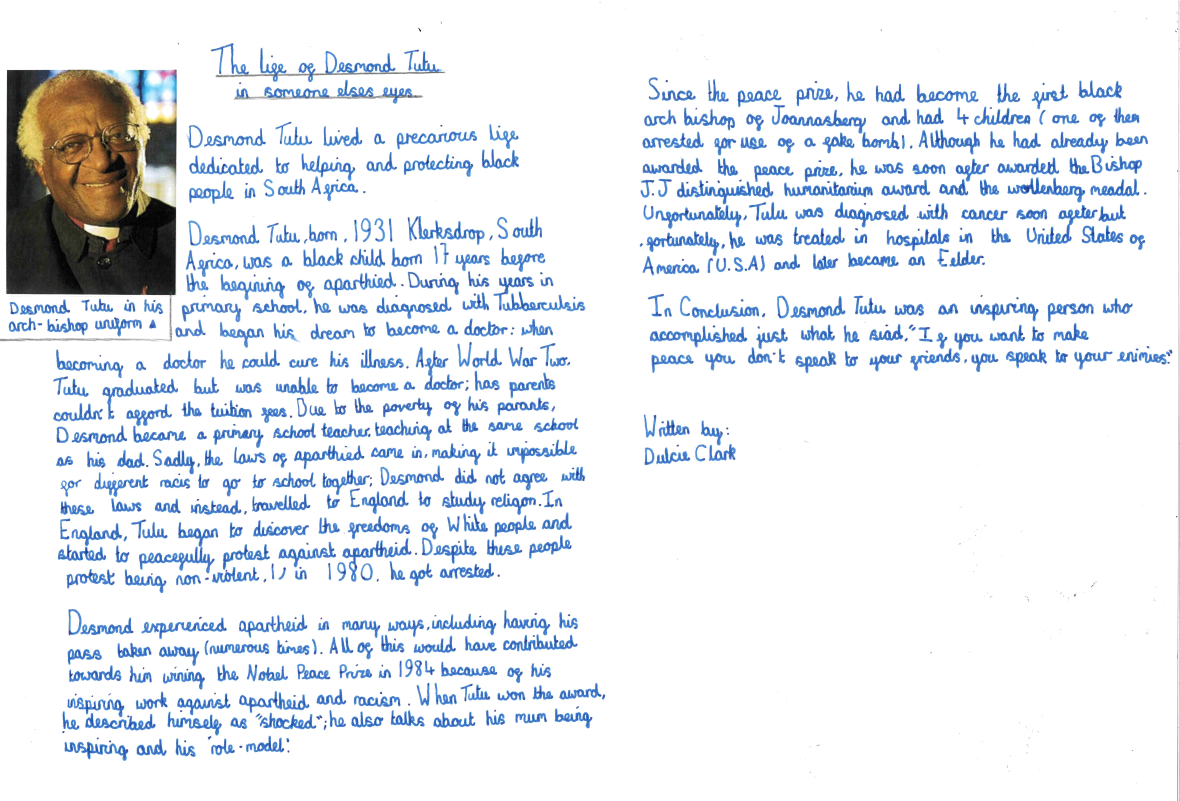 The life of Desmond Tutu
in someone elses eyes.
Desmond Tutu lived a precarious life
dedicated to helping and protecting black
people in South Africa.
Desmond Tutu, born, 1931 Klerksdrop, South
Africa, was a black child born 17 years before
the begining of aparthied. During his years in
primary school, he was diagnosed with Tubberculsis
and began his dream to become a doctor: when
becoming a doctor he could cure his illness. After World War Two,
Tutu graduated but was unable to become a doctor; has parents
couldn't afford the tuition fees. Due to the poverty of his parants,
Desmond became a primary school teacher, teaching at the same school
as his dad. Sadly, the laws of aparthied came in, making it impossible
for different racis to go to school together; Desmond did not agree with
these laws and instead, travelled to England to study religon. In
England, Tutu began to discover the freedoms of White people and
started to peacefully protest against apartheid. Despite these people
protest being non-violent, in 1980, he got arrested.
Desmond Tutu in his
arch-bishop uniform ▲
Desmond experienced apartheid in many ways, including having his
pass taken away (numerous times). All of this would have contributed
towards him wining the Nobel Peace Prize in 1984 because of his
inspiring work against apartheid and racism. When Tutu won the award,
he described himself as "shocked"; he also talks about his mum being
inspiring and his 'role-model'.
Since the peace prize, he had become the first black
arch bishop of Joannasberg and had 4 children (one of them
arrested for use of a fake bomb). Although he had already been
awarded the peace prize, he was soon after awarded the Bishop
J.J distinguished humanitarium award and the wollenberg meadal.
Unfortunately, Tutu was diagnosed with cancer soon afeter but
, fortunately, he was treated in hospitals in the United States of
America (U.S.A) and later became an Eelder.
In Conclusion, Desmond Tutu was an inspiring person who
accomplished just what he said, "If you want to make
peace you don't speak to your friends, you speak to your enimies."
Written by:
Dulcie Clark